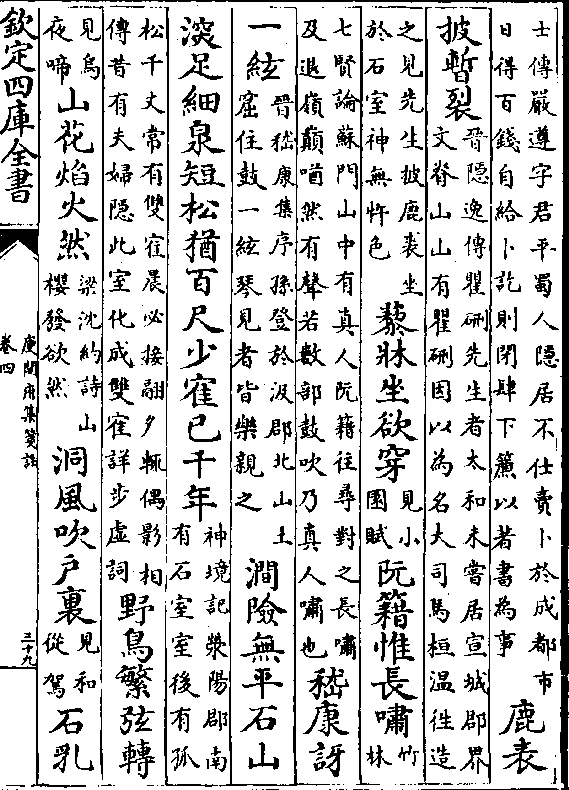 士傳嚴遵字君平蜀人隱居不仕賣卜於成都市
日得百錢自給卜訖則閉肆下簾以著書為事
鹿表
披暫裂
晉隱逸傳瞿硎先生者太和末嘗居宣城郡界
文脊山山有瞿硎因以為名大司馬桓温徃造
之見先生披鹿裘坐
於石室神無忤色
藜牀坐欲穿
見小
園賦
阮籍惟長嘯
竹
林
七賢論蘇門山中有真人阮籍往尋對之長嘯
及退嶺巔㗛然有聲若數部鼓吹乃真人嘯也
嵇康訝
一絃
晉嵇康集序孫登於汲郡北山土
窟住鼓一絃琴見者皆樂親之
澗險無平石山
深足細泉短松猶百尺少寉已千年
神境記滎陽郡南
有石室室後有孤
松千丈常有雙寉晨必接翮夕輒偶影相
傳昔有夫婦隱此室化成雙寉詳步虚詞
野鳥繁弦轉
見烏
夜啼
山花焰火然
梁沈約詩山
櫻發欲然
洞風吹户裏
見和
從駕
石乳
欽定四庫全書
庾開府集箋註
卷四
三十九